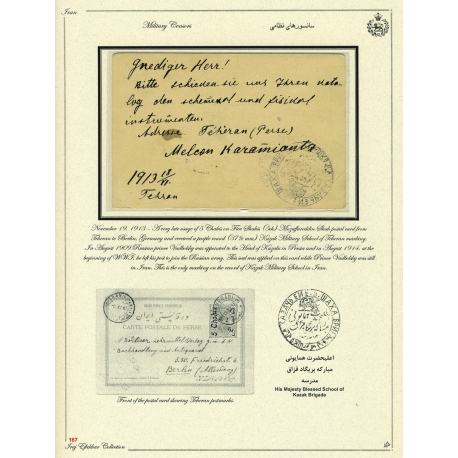 Iran
Military Censors
سانسورهای نظامی
Gnediger Herr!
Bitte schicken sie uns Ihren Kata
log den schemical und fisical
instrumenten.
Adresse Téhéran (Perse)
Melcon Karamiantz
1913 18/XI
Tehran
November 19, 1913 - A very late usage of 5 Chahis on Five Shahis (5ch) Mozaffareddin Shah postal card from
Teheran to Berlin, Germany and received a purple round (37½ mm) Kazak Military School of Teheran marking.
In August 1909 Russian prince Vadbolsky was appointed to the Head of Kazaks in Persia and in August 1914, at the
beginning of WWI, he left his post to join the Russian army. This seal was applied on this card while Prince Vadbolsky was still
in Iran. This is the only marking on the record of Kazak Military School in Iran.
CARTE POSTALE DE PERSE
5 Chahis
Berlin (Allemag)
اعلیحضرت همایونی
مبارکه بریگاد قزاق
مدرسه
His Majesty Blessed School of
Kazak Brigade
Front of the postal card showing Teheran postmarks.
167
Iraj Eftekhar Collection